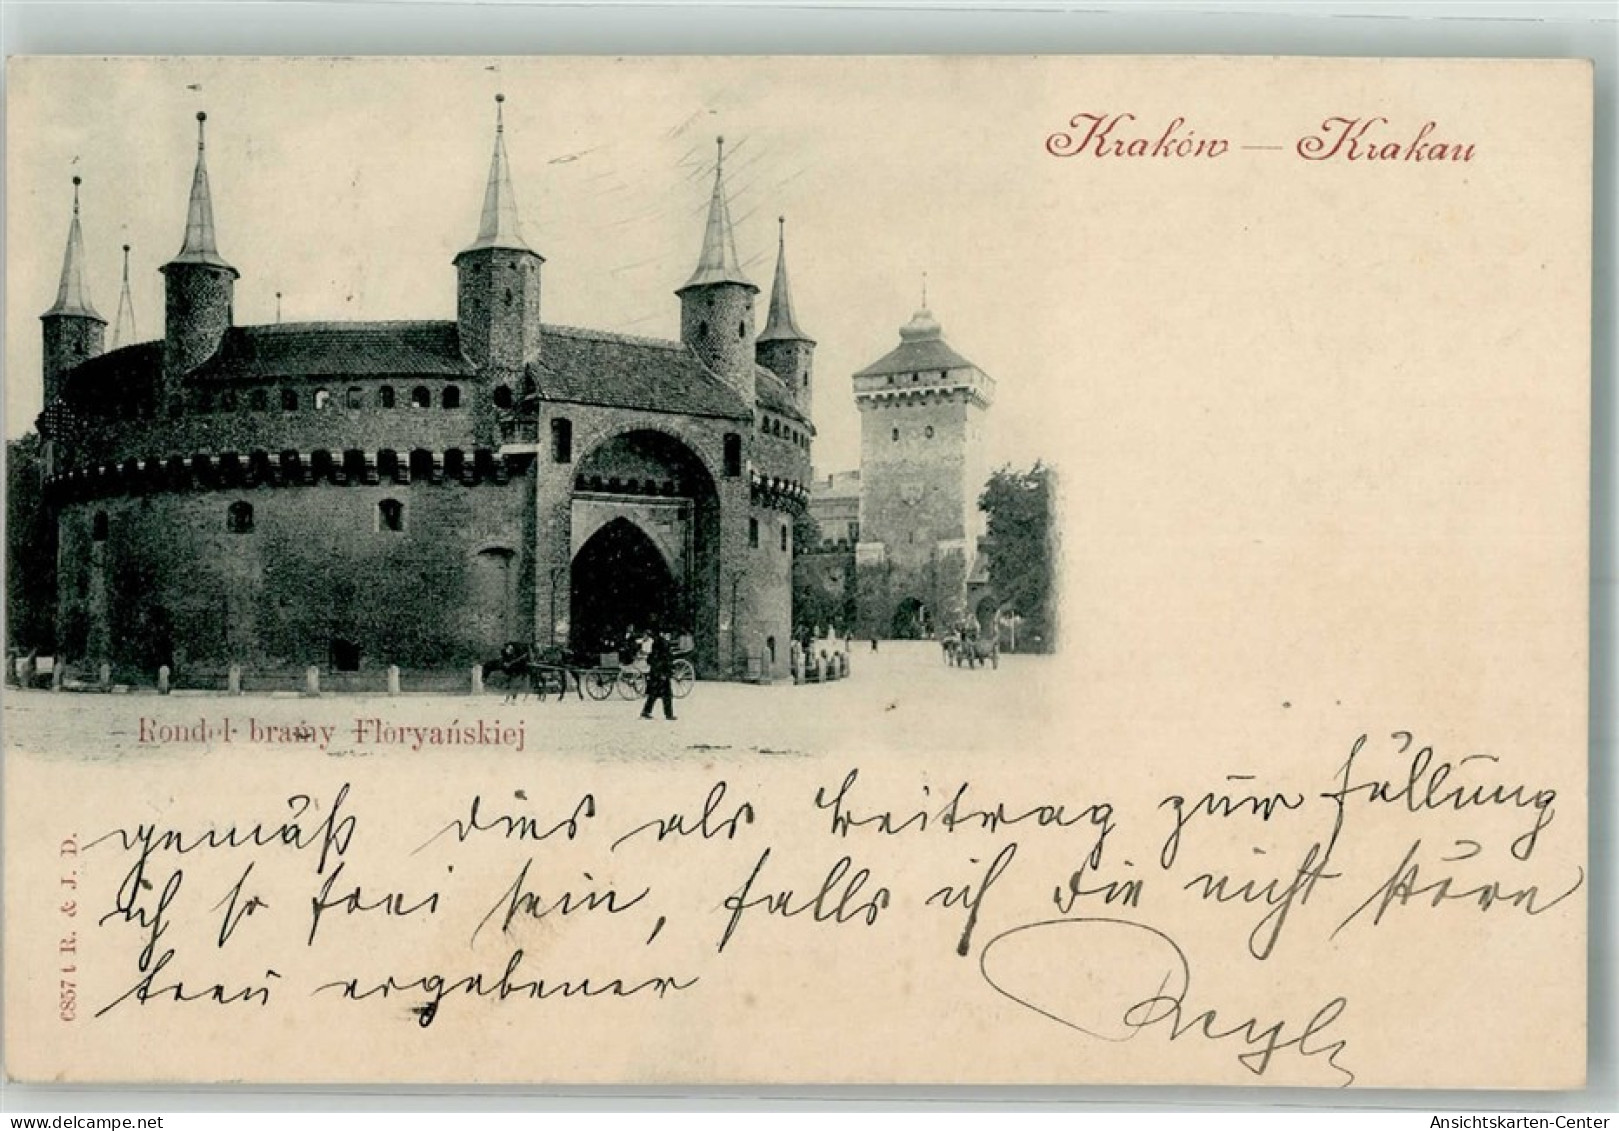 Kraków — Krakau
Rondel bramy Floryańskiej
gemäß dies als Beitrag zur Füllung
ich so frei sein, falls ich Sie nicht störe
treu ergebener
6857 t R. & J. D.
Ansichtskarten-Center